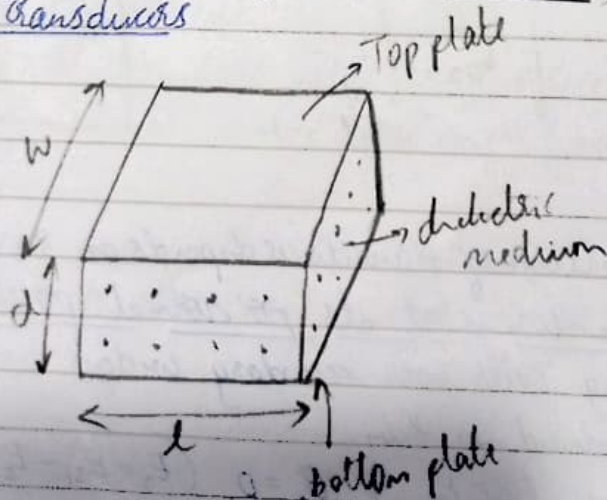 transducers
Top plate
w
dielectric
medium
d
l
bottom plate